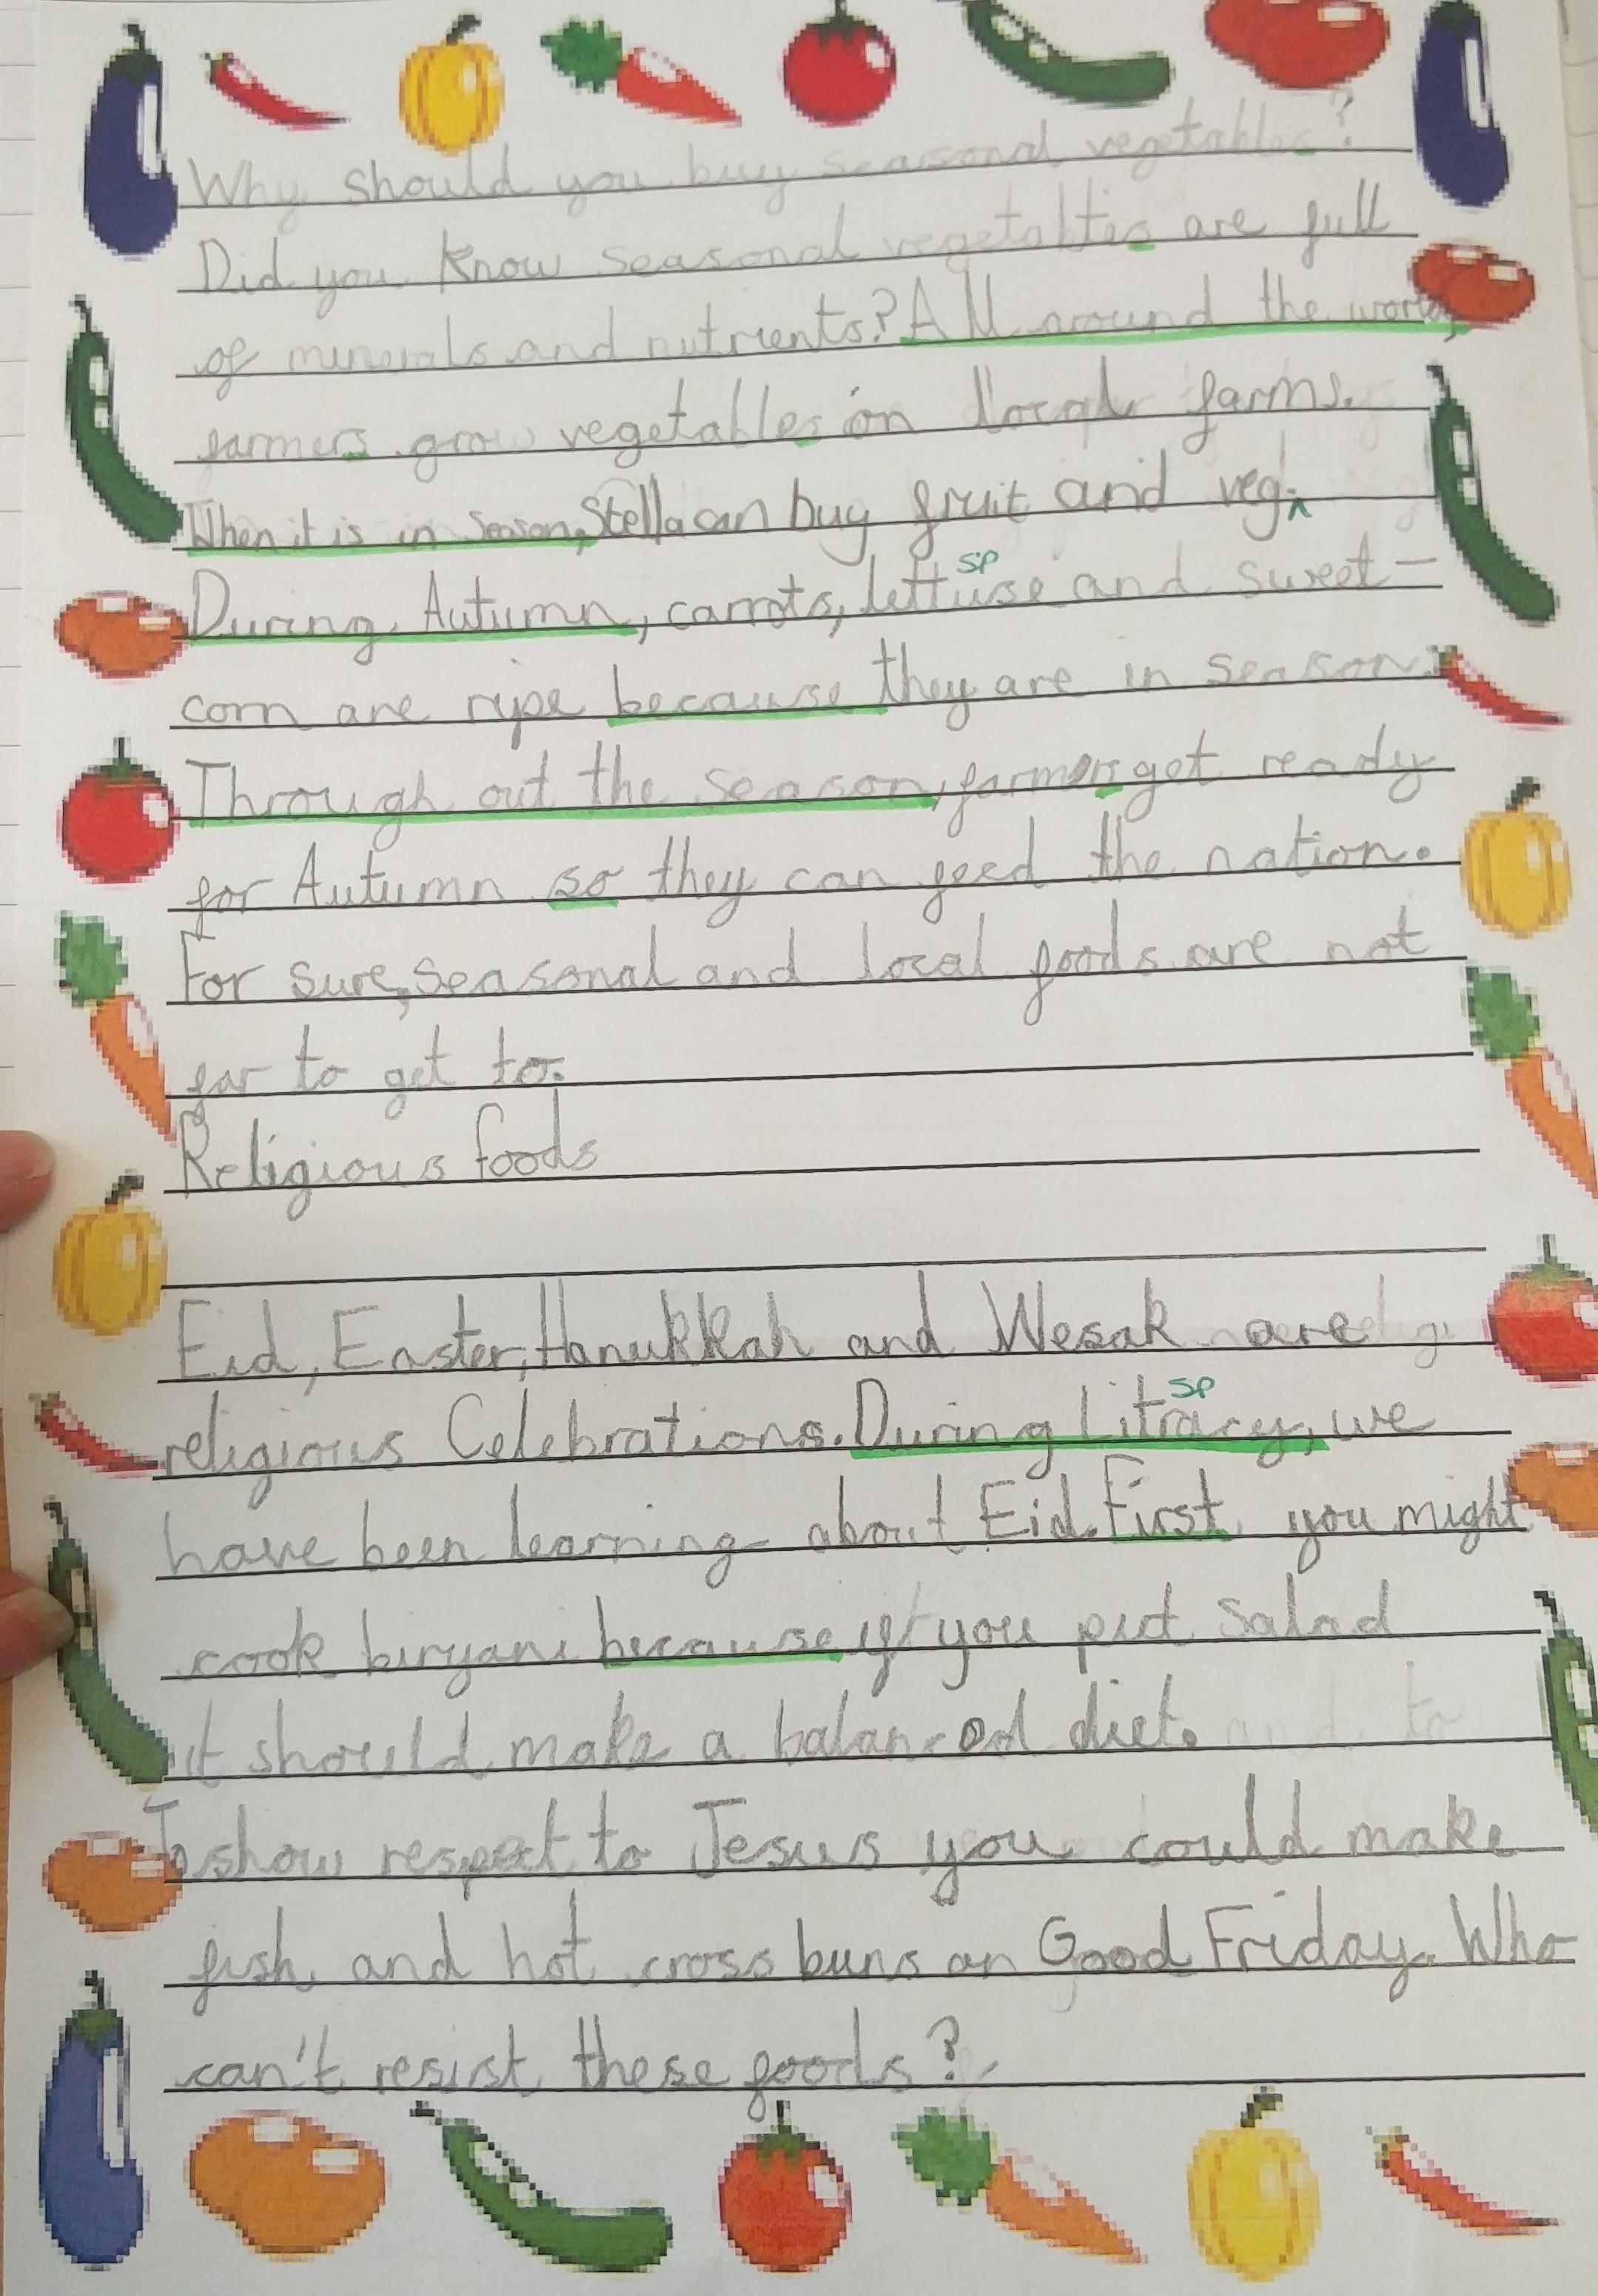 Why should you buy seasonal vegetables?
Did you know seasonal vegetables are full
of minerals and nutrients? All around the world,
farmers grow vegetables on local farms.
When it is in season, Stella can buy fruit and veg.
sp
During Autumn, carrots, lettuse and sweet-
corn are ripe because they are in season.
Through out the season, farmers get ready
for Autumn so they can feed the nation.
For sure, seasonal and local foods are not
far to get to.
Religious foods
Eid, Easter, Hanukkah and Wesak are
sp
religious Celebrations. During Litracy, we
have been learning about Eid. First, you might
cook biryani because if you put salad
it should make a balanced diet.
To show respect to Jesus you could make
fish and hot cross buns on Good Friday. Who
can't resist these foods?